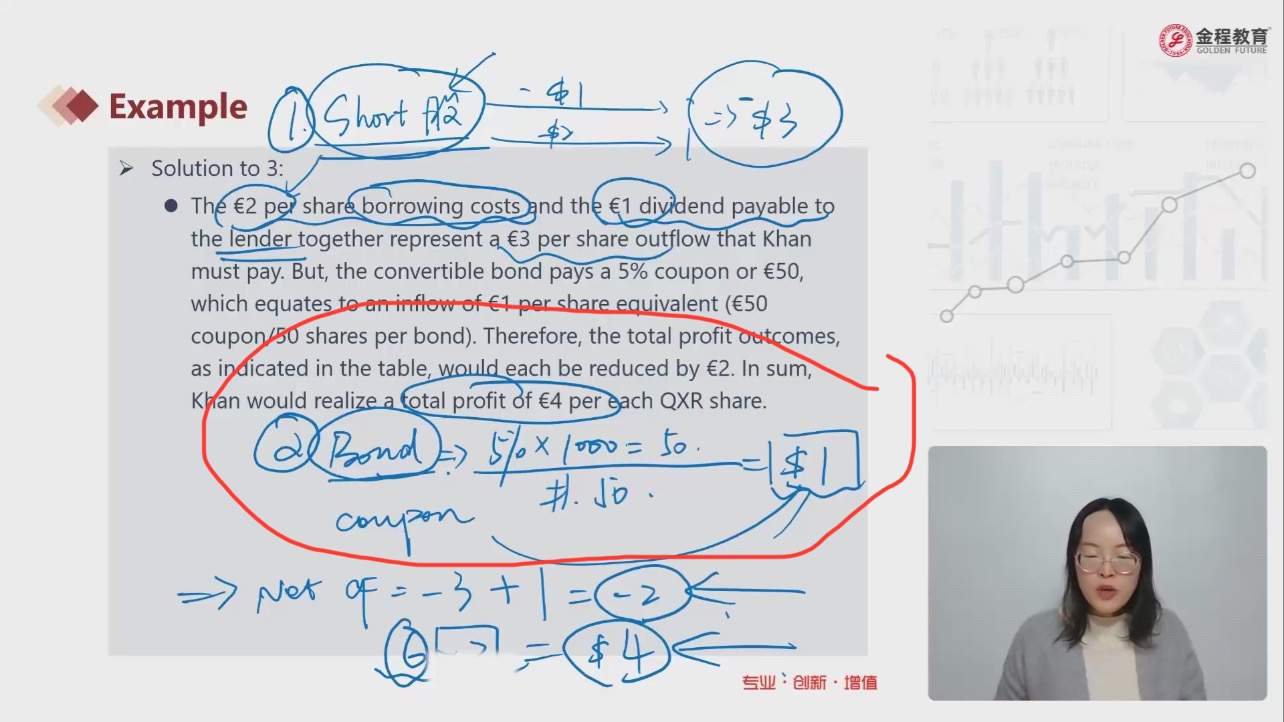 金程教育
GOLDEN FUTURE
Example
1. Short
- $1
$2
=> -$3
Solution to 3:
The €2 per share borrowing costs and the €1 dividend payable to
the lender together represent a €3 per share outflow that Khan
must pay. But, the convertible bond pays a 5% coupon or €50,
which equates to an inflow of €1 per share equivalent (€50
coupon/50 shares per bond). Therefore, the total profit outcomes,
as indicated in the table, would each be reduced by €2. In sum,
Khan would realize a total profit of €4 per each QXR share.
2 Bond => 5% × 1000 = 50.
#. 50.
= $1
coupon
=> Net CF = -3 + 1 = -2
6 -2 = $4
专业·创新·增值